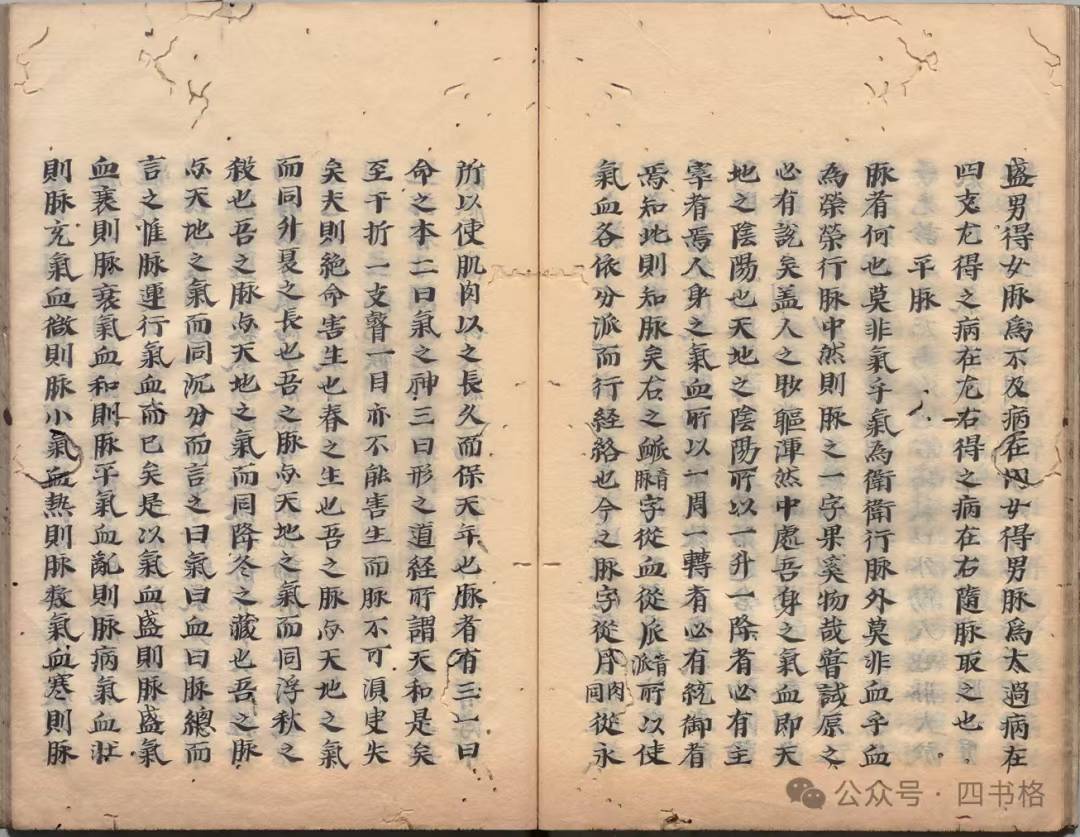 盛男得女脉爲不及病在內女得男脉爲太過病在
四支尤得之病在尤右得之病在右隨脉取之也
平脉
脉者何也莫非氣乎氣為衛衛行脉外莫非血乎血
為榮榮行脉中然則脉之一字果奚物哉嘗試原之
必有説矣盖人之眇軀渾然中處吾身之氣血即天
地之陰陽也天地之陰陽所以一升一降者必有主
宰者焉人身之氣血所以一周一轉有必有統御者
焉知此則知脉矣右之䘑音脉字從血從𠂢音派所以使
氣血各依分派而行経絡也今之脉字從月肉同從永
所以使肌肉以之長久而保天年也脉者有三一曰
命之本二曰氣之神三曰形之道経所謂天和是矣
至于折一支瞽一目亦不能害生而脉不可湏臾失
矣夫則絶命害生也春之生也吾之脉与天地之氣
而同升夏之長也吾之脉与天地之氣而同浮秋之
殺也吾之脉与天地之氣而同降冬之藏也吾之脉
与天地之氣而同沉分而言之曰氣曰血曰脉總而
言之惟脉運行氣血而已矣是以氣血盛則脉盛氣
血衰則脉衰氣血和則脉平氣血亂則脉病氣血壮
則脉充氣血微則脉小氣血熱則脉数氣血寒則脉
公众号·四书格